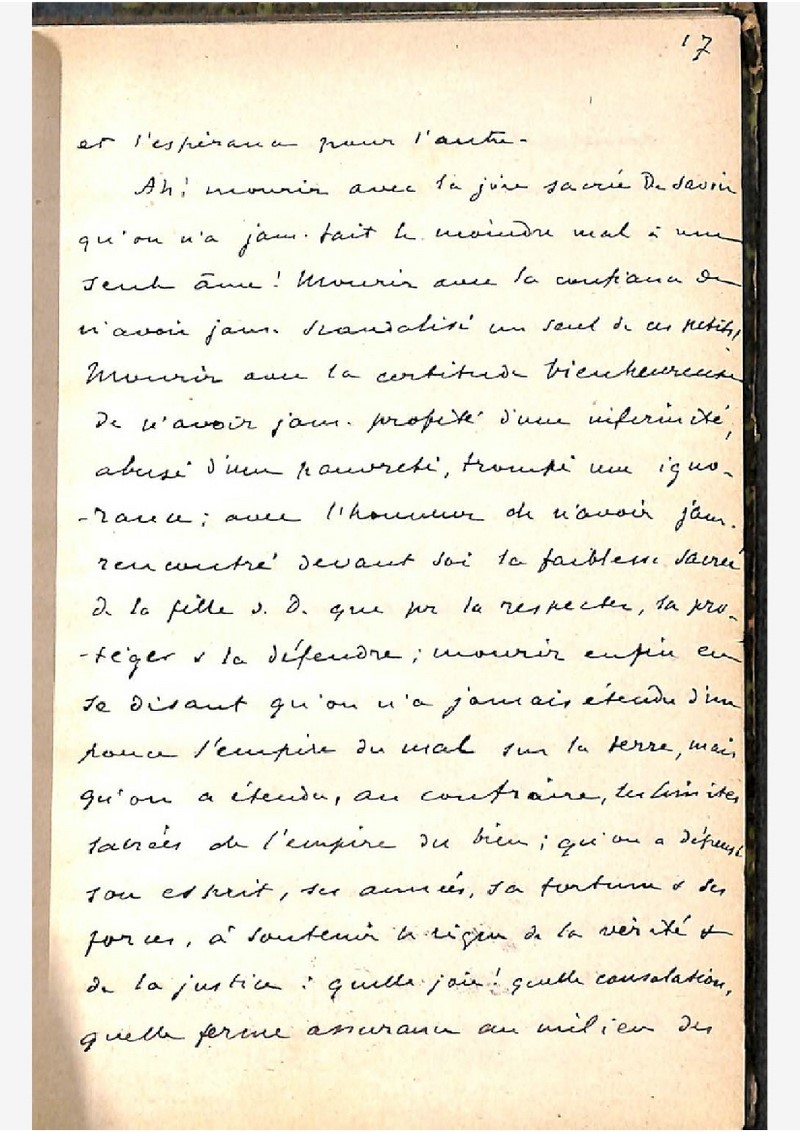 17
et l'espérance pour l'autre.
Ah! mourir avec la joie sacrée de savoir
qu'on n'a jam. fait le moindre mal à une
seule âme! Mourir avec la confiance de
n'avoir jam. scandalisé un seul de ces petits!
Mourir avec la certitude bienheureuse
de n'avoir jam. profité d'une infirmité,
abusé d'une pauvreté, trompé une igno-
-rance; avec l'honneur de n'avoir jam.
rencontré devant soi la faiblesse sacrée
de la fille d. D. que pr la respecter, la pro-
-téger & la défendre; mourir enfin en
se disant qu'on n'a jamais étendu d'un
pouce l'empire du mal sur la terre, mais
qu'on a étendu, au contraire, les limites
sacrées de l'empire du bien; qu'on a dépensé
son esprit, ses années, sa fortune & ses
forces, à soutenir le règne de la vérité &
de la justice : quelle joie! quelle consolation,
quelle ferme assurance au milieu des